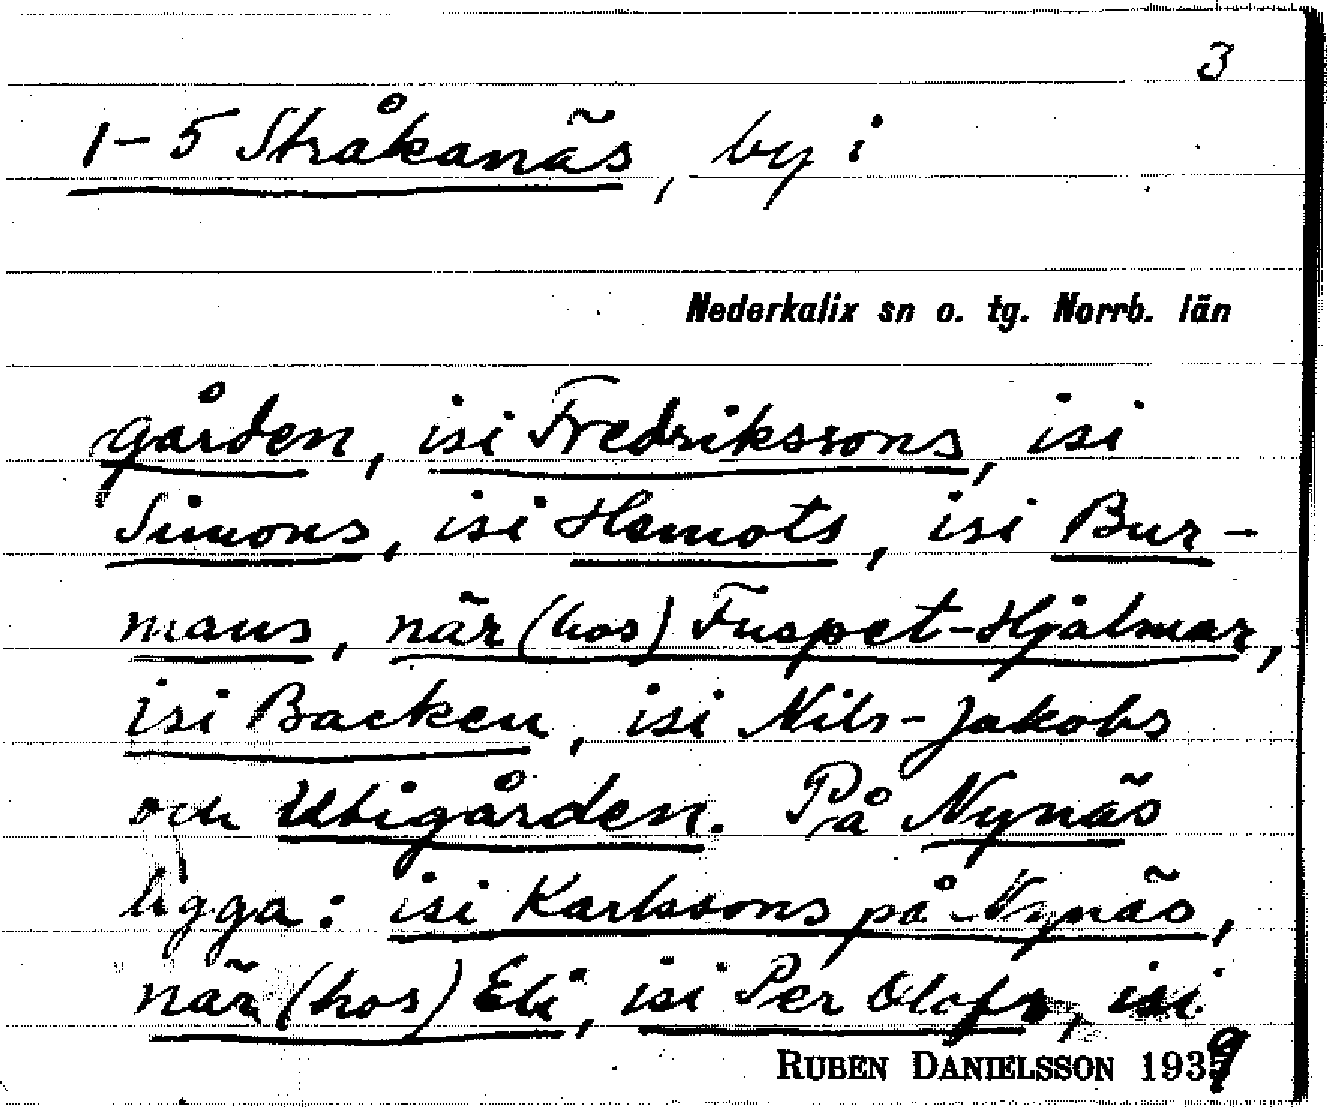 3
1-5 Stråkanäs, by i
Nederkalix sn o. tg. Norrb. län
gården, isi Fredrikssons, isi
Simons, isi Hamots, isi Bur-
mans, när (hos) Fuspet-Hjalmar,
isi Backen, isi Nils-Jakobs
och Utigården. På Nynäs
ligga: isi Karlssons på Nynäs,
när (hos) Eli, isi Per Olofs, isi
RUBEN DANIELSSON 1939